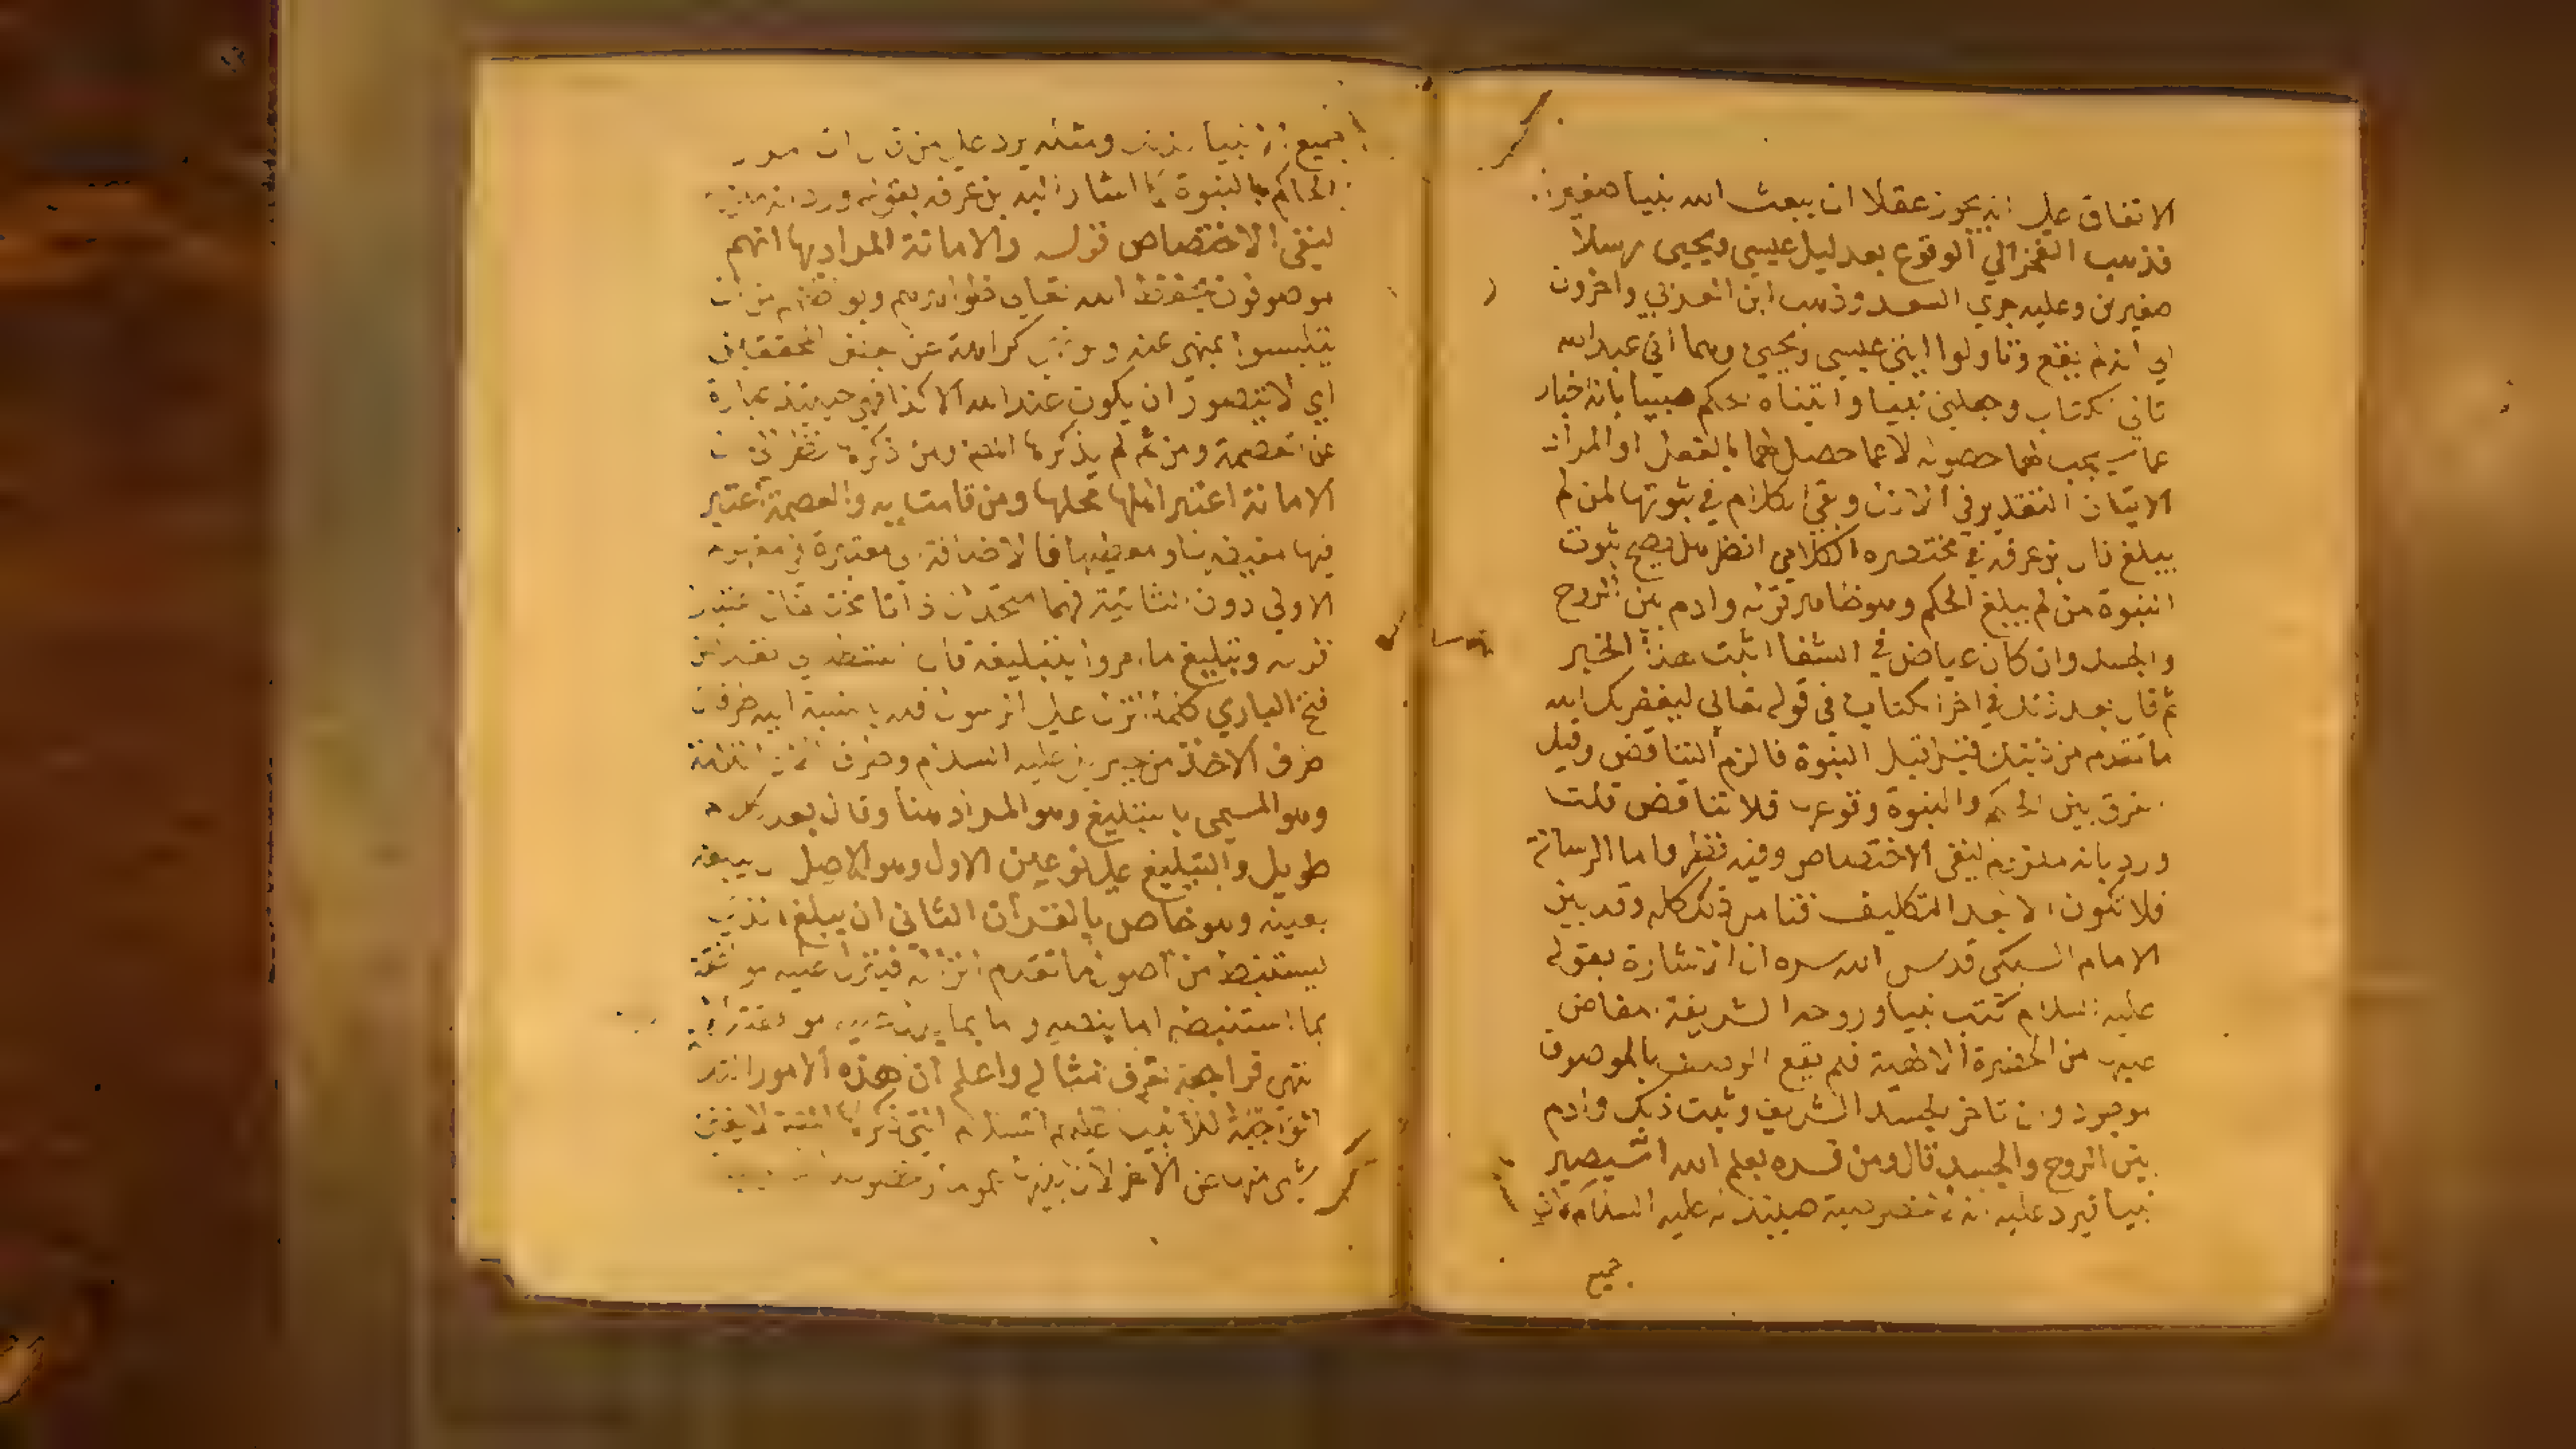 الاتفاق على انه يجوز عقلا ان يبعث الله نبيا صغيرا
فذهب الفخر الي الوقوع بعد ليل عيسى ويحيى رسلا
صغيرين وعليه جري السعد وذهب ابن العربي واخرون
الي انه لم يقع وتاولوا ايتي عيسى ويحيى وهما اني عبد الله
تاني الكتاب وجعلني نبيا واتيناه الحكم صبيا بانه اخبار
عما سيجب لهما حصوله لا عما حصل لهما بالفعل او المراد
الاتيان التقدير في الازل وبقى الكلام في ثبوتها لمن لم
يبلغ قال بن عرفه في مختصره الكلامي انظر هل يصح ثبوت
النبوة من لم يبلغ الحكم وهو ظاهر قوله وادم بين الروح
والجسد وان كان عياض في الشفا اثبت هذا الخبر
ثم قال بعد ذلك في اخر الكتاب في قوله تعالى ليغفر لك الله
ما تقدم من ذنبك قيل قبل النبوة فالزم التناقض وقيل
يفرق بين الحكم والنبوة وقوعها فلا تناقض قلت
ورد بانه ملتزم لنفي الاختصاص وفيه نظر واما الرسالة
فلا تكون الا بعد التكليف فتامل ذلك كله وقد بين
الامام السبكي قدس الله سره ان الاشارة بقوله
عليه السلام كنت نبيا وروحه الشريفة المفاض
عليها من الحضرة الالهية فلم يقع الوصف بالموصوف
موجود وان تاخر الجسد الشريف وثبت ذلك وادم
بين الروح والجسد قال ومن فسره بعلم الله انه سيصير
نبيا فيرد عليه انه لا خصوصية حينئذ له عليه السلام لان
جميع
جميع الانبيا ومثله يرد على من قال ان المراد
الحكم بالنبوة كما اشار اليه بن عرفه بقوله ورد بانه ملتزم
لنفي الاختصاص قوله والامانة المراد بها انهم
موصوفون بحفظ الله تعالى ظواهرهم وبواطنهم من ان
يتلبسوا بمنهي عنه ولو نهي كراهة عن بعض المحققين
اي لا يتصور ان يكون عند الله الا كذا فهي حينئذ عبارة
عن العصمة ومن ثم لم يذكرها المص ومن ذكرها نظر الى ان
الامانة اعتبر اهلها محلها ومن قامت به والعصمة اعتبر
فيها مفيضها ومعطيها فالاضافة معتبرة في مفهوم
الاولي دون الثانية فهما متحدان ذاتا مختلفان اعتبارا
قوله وتبليغ ما امروا بتبليغه قال القسطلاني نقلا عن
فتح الباري كلما انزل على الرسول فله بالنسبة اليه طرفان
طرف الاخذ من جبريل عليه السلام وطرف
وهو المسمى بالتبليغ وهو المراد هنا وقال بعد كلام
طويل والتبليغ على نوعين الاول وهو الاصل ان يبلغه
بعينه وهو خاص بالقران الثاني ان يبلغ
يستنبط من اصول ما تقدم انزاله فينزل عليه موافقته
بما استنبطه اما بنصه واما بما يدل
انتهى فراجعه تعرف مثاله واعلم ان هذه الامور
الواجبة للانبيا عليهم السلام التي ذكرها لا يغني
شى منها عن الاخر لان بينها عموما وخصوصا